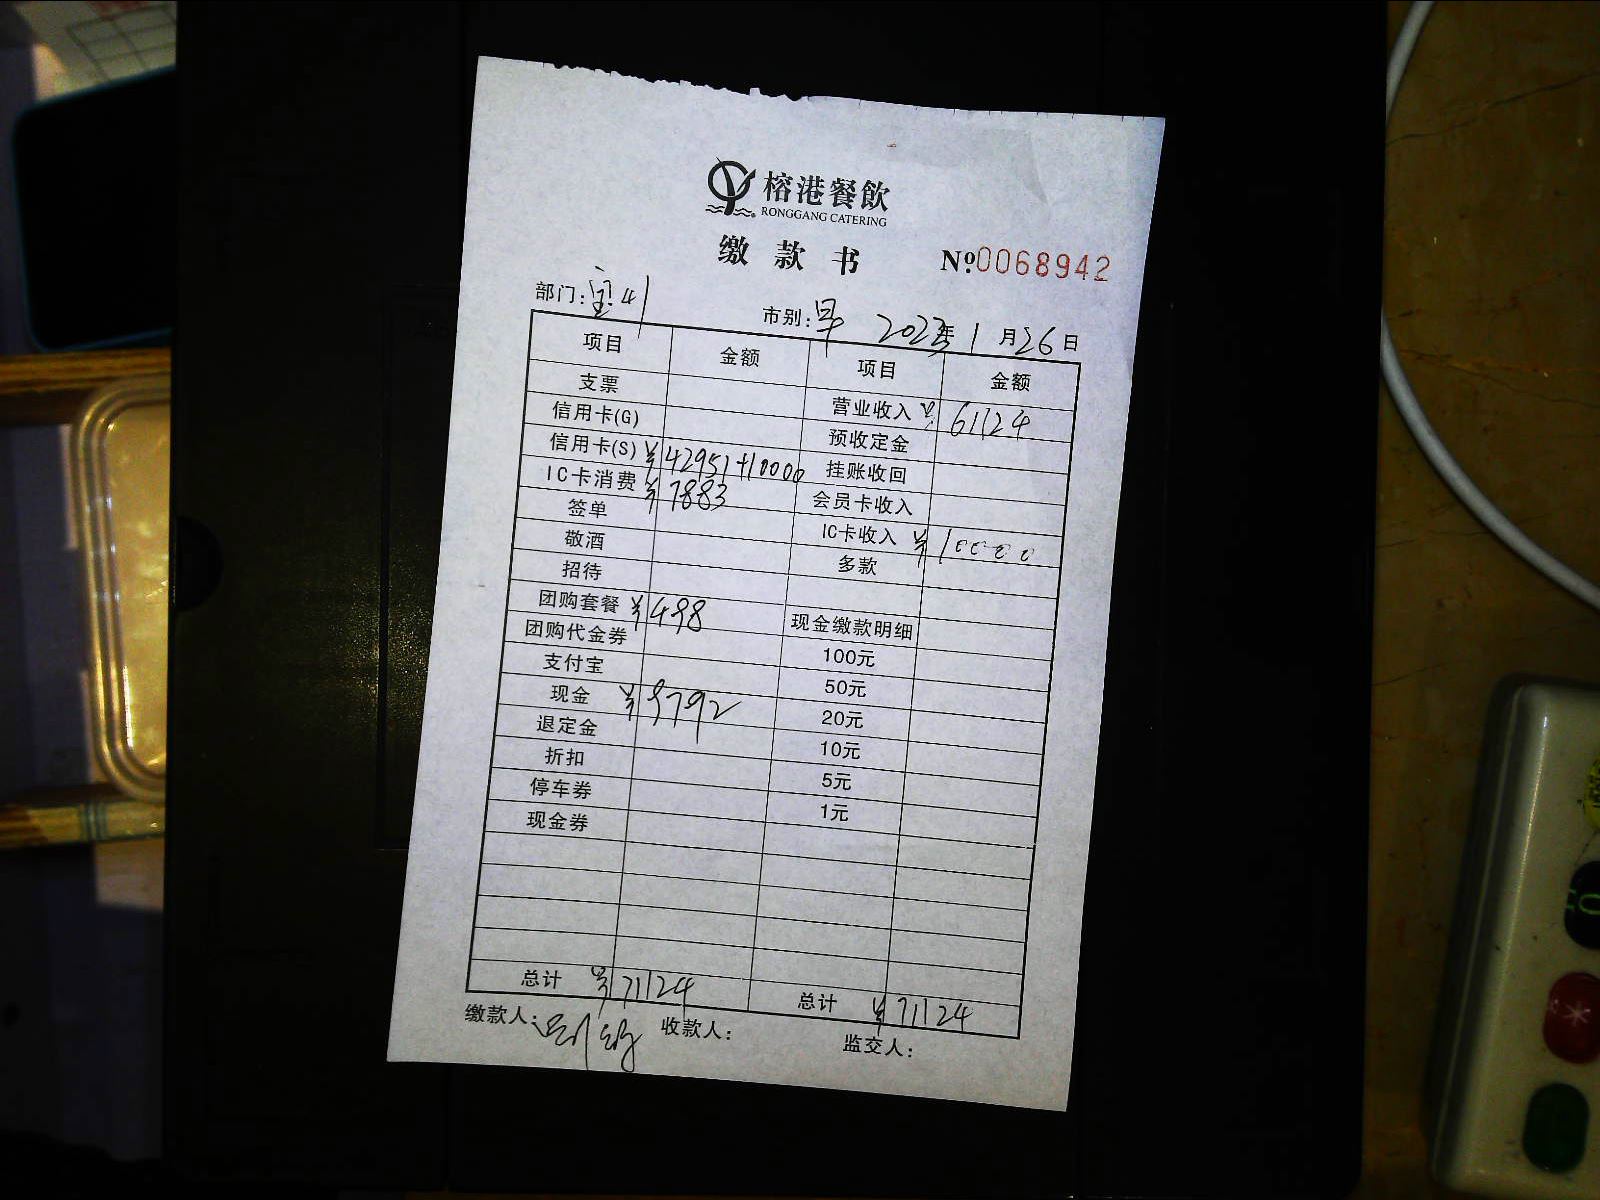 榕港餐飲
RONGGANG CATERING
缴款书 Nº:0068942
部门: 市别:早 2023年1月26日
项目 金额 项目 金额
支票 营业收入 ¥61124
信用卡(G) 预收定金
信用卡(S) ¥42951+10000 挂账收回
IC卡消费 ¥7883 会员卡收入
签单 IC卡收入 ¥10000
敬酒 多款
招待
团购套餐 ¥498 现金缴款明细
团购代金券 100元
支付宝 50元
现金 ¥9792 20元
退定金 10元
折扣 5元
停车券 1元
现金券
总计 ¥71124 总计 ¥71124
缴款人: 收款人: 监交人: